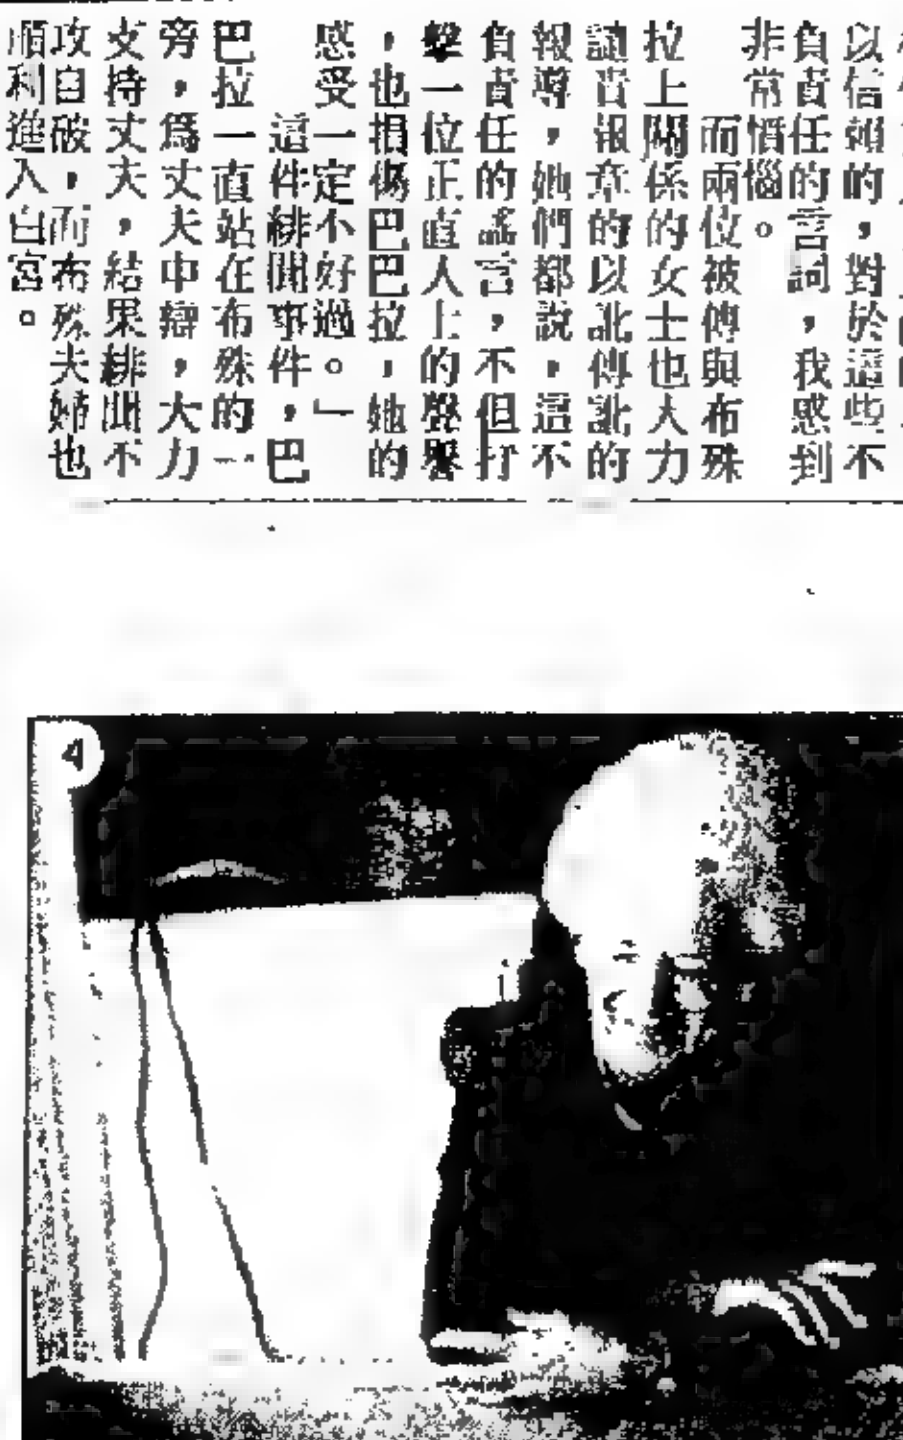 以信賴的，對於這些不
負責任的言詞，我感到
非常憤惱。
而兩位被傳與布殊
拉上關係的女士也大力
譴責報章的以訛傳訛的
報導，她們都說，這不
負責任的謠言，不但打
擊一位正直人士的聲譽
，也損傷巴巴拉，她的
感受一定不好過。」
這件緋聞事件，巴
巴拉一直站在布殊的一
旁，爲丈夫申辯，大力
支持丈夫，結果緋聞不
攻自破，而布殊夫婦也
順利進入白宮。
4